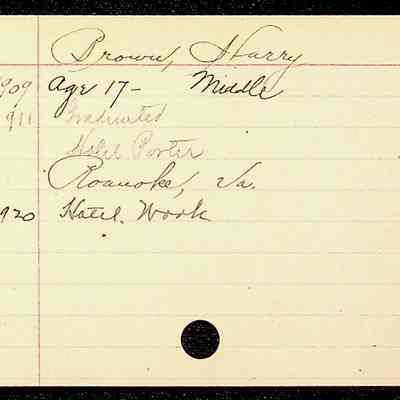 Brown, Harry
909 Age 17- Middle
911 Graduated
Hotel Porter
Roanoke, Va.
920 Hotel. Work